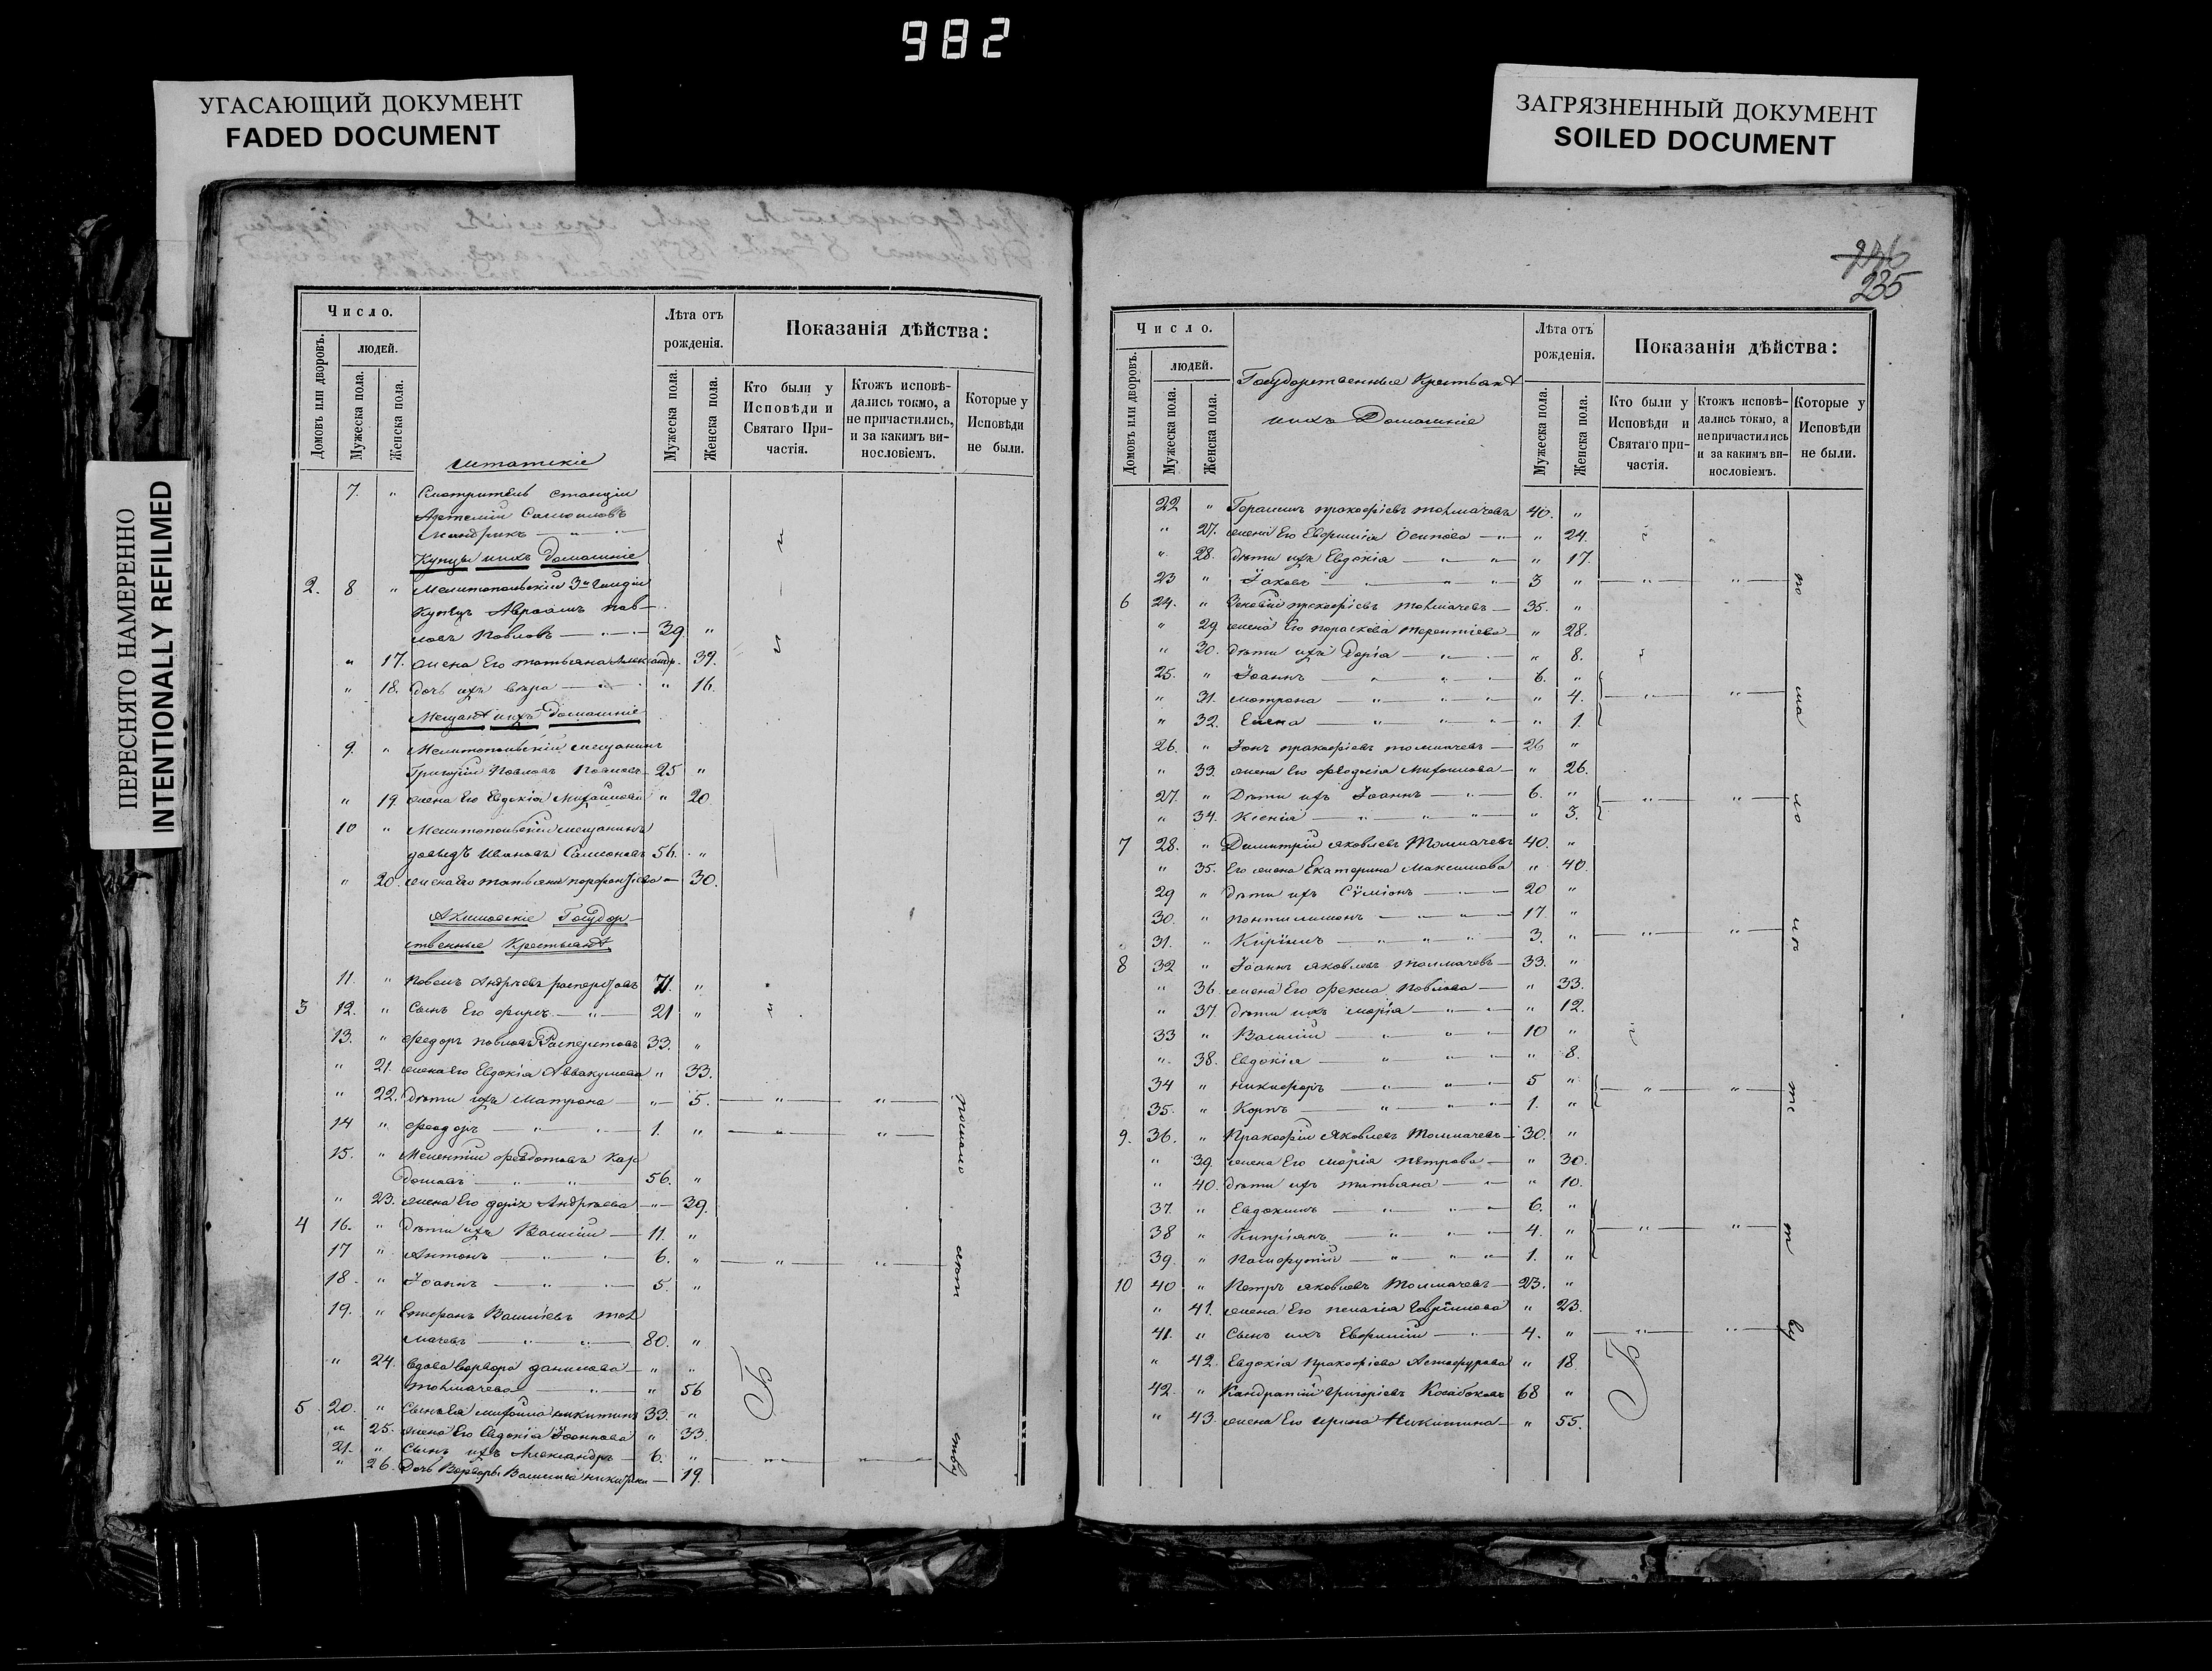 982
УГАСАЮЩИЙ ДОКУМЕНТ
FADED DOCUMENT
ЗАГРЯЗНЕННЫЙ ДОКУМЕНТ
SOILED DOCUMENT
ПЕРЕСНЯТО НАМЕРЕННО
INTENTIONALLY REFILMED
Число.
людей.
Домовъ или дворовъ.
Мужеска пола.
Женска пола.
Лѣта отъ рожденія.
Мужеска пола.
Женска пола.
Показанія дѣйства:
Кто были у Исповѣди и Святаго При-частія.
Ктожъ исповѣ-дались токмо, а не причастились, и за какимъ ви-нословіемъ.
Которые у Исповѣди не были.
Статскіе
7. " Смотритель станціи
Артемій
Купцы и ихъ домашніе
2. 8 " Мелитопольскій 3й Гильдіи
Купецъ Авраамъ Пав-
ловъ Павловъ 39 "
" 17. жена Его татьяна Александр. 39.
" 18. дочь ихъ вѣра " 16.
Мещанѣ и ихъ домашніе
9. " Мелитопольскій мещанинъ
Григорій Павловъ Павловъ 25 "
" 19 жена Его Евдокія Михайлова " 20.
10 " Мелитопольскій мещанинъ
давыдъ Ивановъ 56. "
" 20. жена Его татьяна 30.
Акимовскіе Государ-
ственные Крестьянѣ
11. " Павелъ Андреевъ 71. "
3 12. " Сынъ Его фирсъ 21 "
13. " Федоръ Павловъ 33. "
" 21. жена Его Евдокія Аввакумова " 33.
" 22. дѣти ихъ Матрона " 5. " "
14 " Феодоръ 1. " " "
15. " Мелентій Федотовъ Кар
56. "
" 23. жена Его дарія Андреева " 39.
4 16. " Дѣти ихъ Василій 11. "
17 " Антонъ 6. " " "
18. " Іоаннъ 5. "
19. " Василіевъ тол
мачевъ 80. "
" 24. вдова варвара данилова " "
толмачева " 56
5 20. " Сынъ Ея михаилъ никитинъ 33. "
" 25. жена Его Евдокія Іоаннова " 33.
21. " Сынъ ихъ Александръ 6. " " "
" 26. Дочь Варвары 19.
по малолѣтству
246
235
Число.
людей.
Домовъ или дворовъ.
Мужеска пола.
Женска пола.
Государственные Крестьянѣ
и ихъ Домашніе
Лѣта отъ рожденія.
Мужеска пола.
Женска пола.
Показанія дѣйства:
Кто были у Исповѣди и Святаго при-частія.
Ктожъ исповѣ-дались токмо, а не причастились и за какимъ ви-нословіемъ.
Которые у Исповѣди не были.
22 " Герасимъ прокофіевъ толмачевъ 40. "
" 27. жена Его Евфимія Осипова " 24.
" 28. дѣти ихъ Евдокія " 17.
23 " Іаковъ 3 " " "
6 24. " прокофіевъ толмачевъ 35. "
" 29 жена Его параскева терентіева " 28.
" 30. дѣти ихъ Дарія " 8.
25. " Іоаннъ 6. "
" 31. матрона " 4. " "
" 32. Елена " 1.
26. " Іонъ прокофіевъ толмачевъ 26 "
" 33. жена Его феодосія Михайлова " 26.
27. " Дѣти ихъ Іоаннъ 6. " " "
" 34. Ксенія " 3.
7 28. " Димитрій яковлевъ Толмачевъ 40. "
" 35. Его жена Екатерина Максимова " 40.
29 " дѣти ихъ Сѵміонъ 20 "
30. " Понтилимонъ 17. "
31. " Кирилъ 3. " " "
8 32 " Іоаннъ яковлевъ толмачевъ 33. "
" 36. жена Его Фекла Павлова " 33.
" 37. дѣти ихъ марія " 12.
33 " Василій 10 "
" 38. Евдокія " 8.
34 " никифоръ 5 " " "
35. " Карпъ 1. "
9. 36. " Прокофій яковлевъ Толмачевъ 30. "
" 39. жена Его марія пѣтрова " 30.
" 40. дѣти ихъ татьяна " 10.
37. " Евдокимъ 6. "
38 " Кипріянъ 4. " " "
39. " Памфутій 1. "
10 40 " Петръ яковлевъ Толмачевъ 23. "
" 41. жена Его пелагія Гаврилова " 23.
41. " Сынъ ихъ Евфимій 4. " " "
" 42. Евдокія Прокофіева " 18.
42. " Кандратій григоріевъ 68 "
" 43. жена Его ирина Никитина " 55.
по ма ло лѣ тс т ву